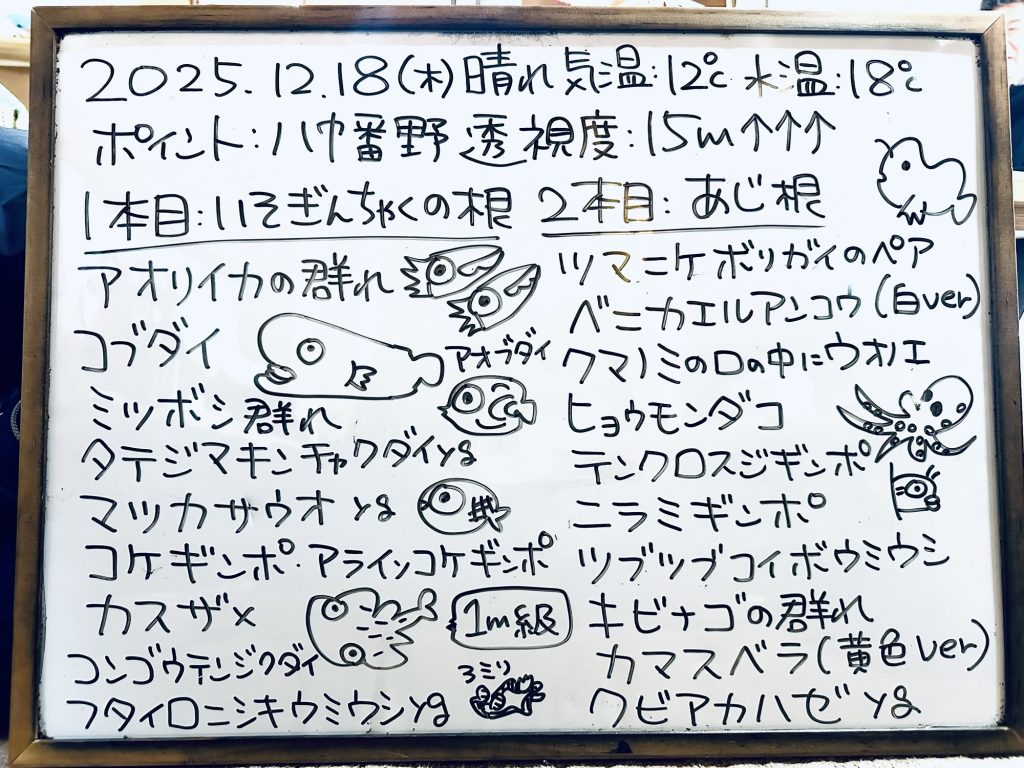 2025.12.18(木)晴れ 気温:12℃ 水温:18℃
ポイント:八幡野 透視度:15m↑↑↑
1本目:いそぎんちゃくの根
アオリイカの群れ
コブダイ
アオブダイ
ミツボシ群れ
タテジマキンチャクダイyg
マツカサウオ yg
コケギンポ・アライソコケギンポ
カスザメ
1m級
コンゴウテンジクダイ
フタイロニシキウミウシyg
3ミリ
2本目:あじ根
ツマニケボリガイのペア
ベニカエルアンコウ(白ver)
クマノミの口の中にウオノエ
ヒョウモンダコ
テンクロスジギンポ
ニラミギンポ
ツブツブコイボウミウシ
キビナゴの群れ
カマスベラ(黄色ver)
クビアカハゼ yg